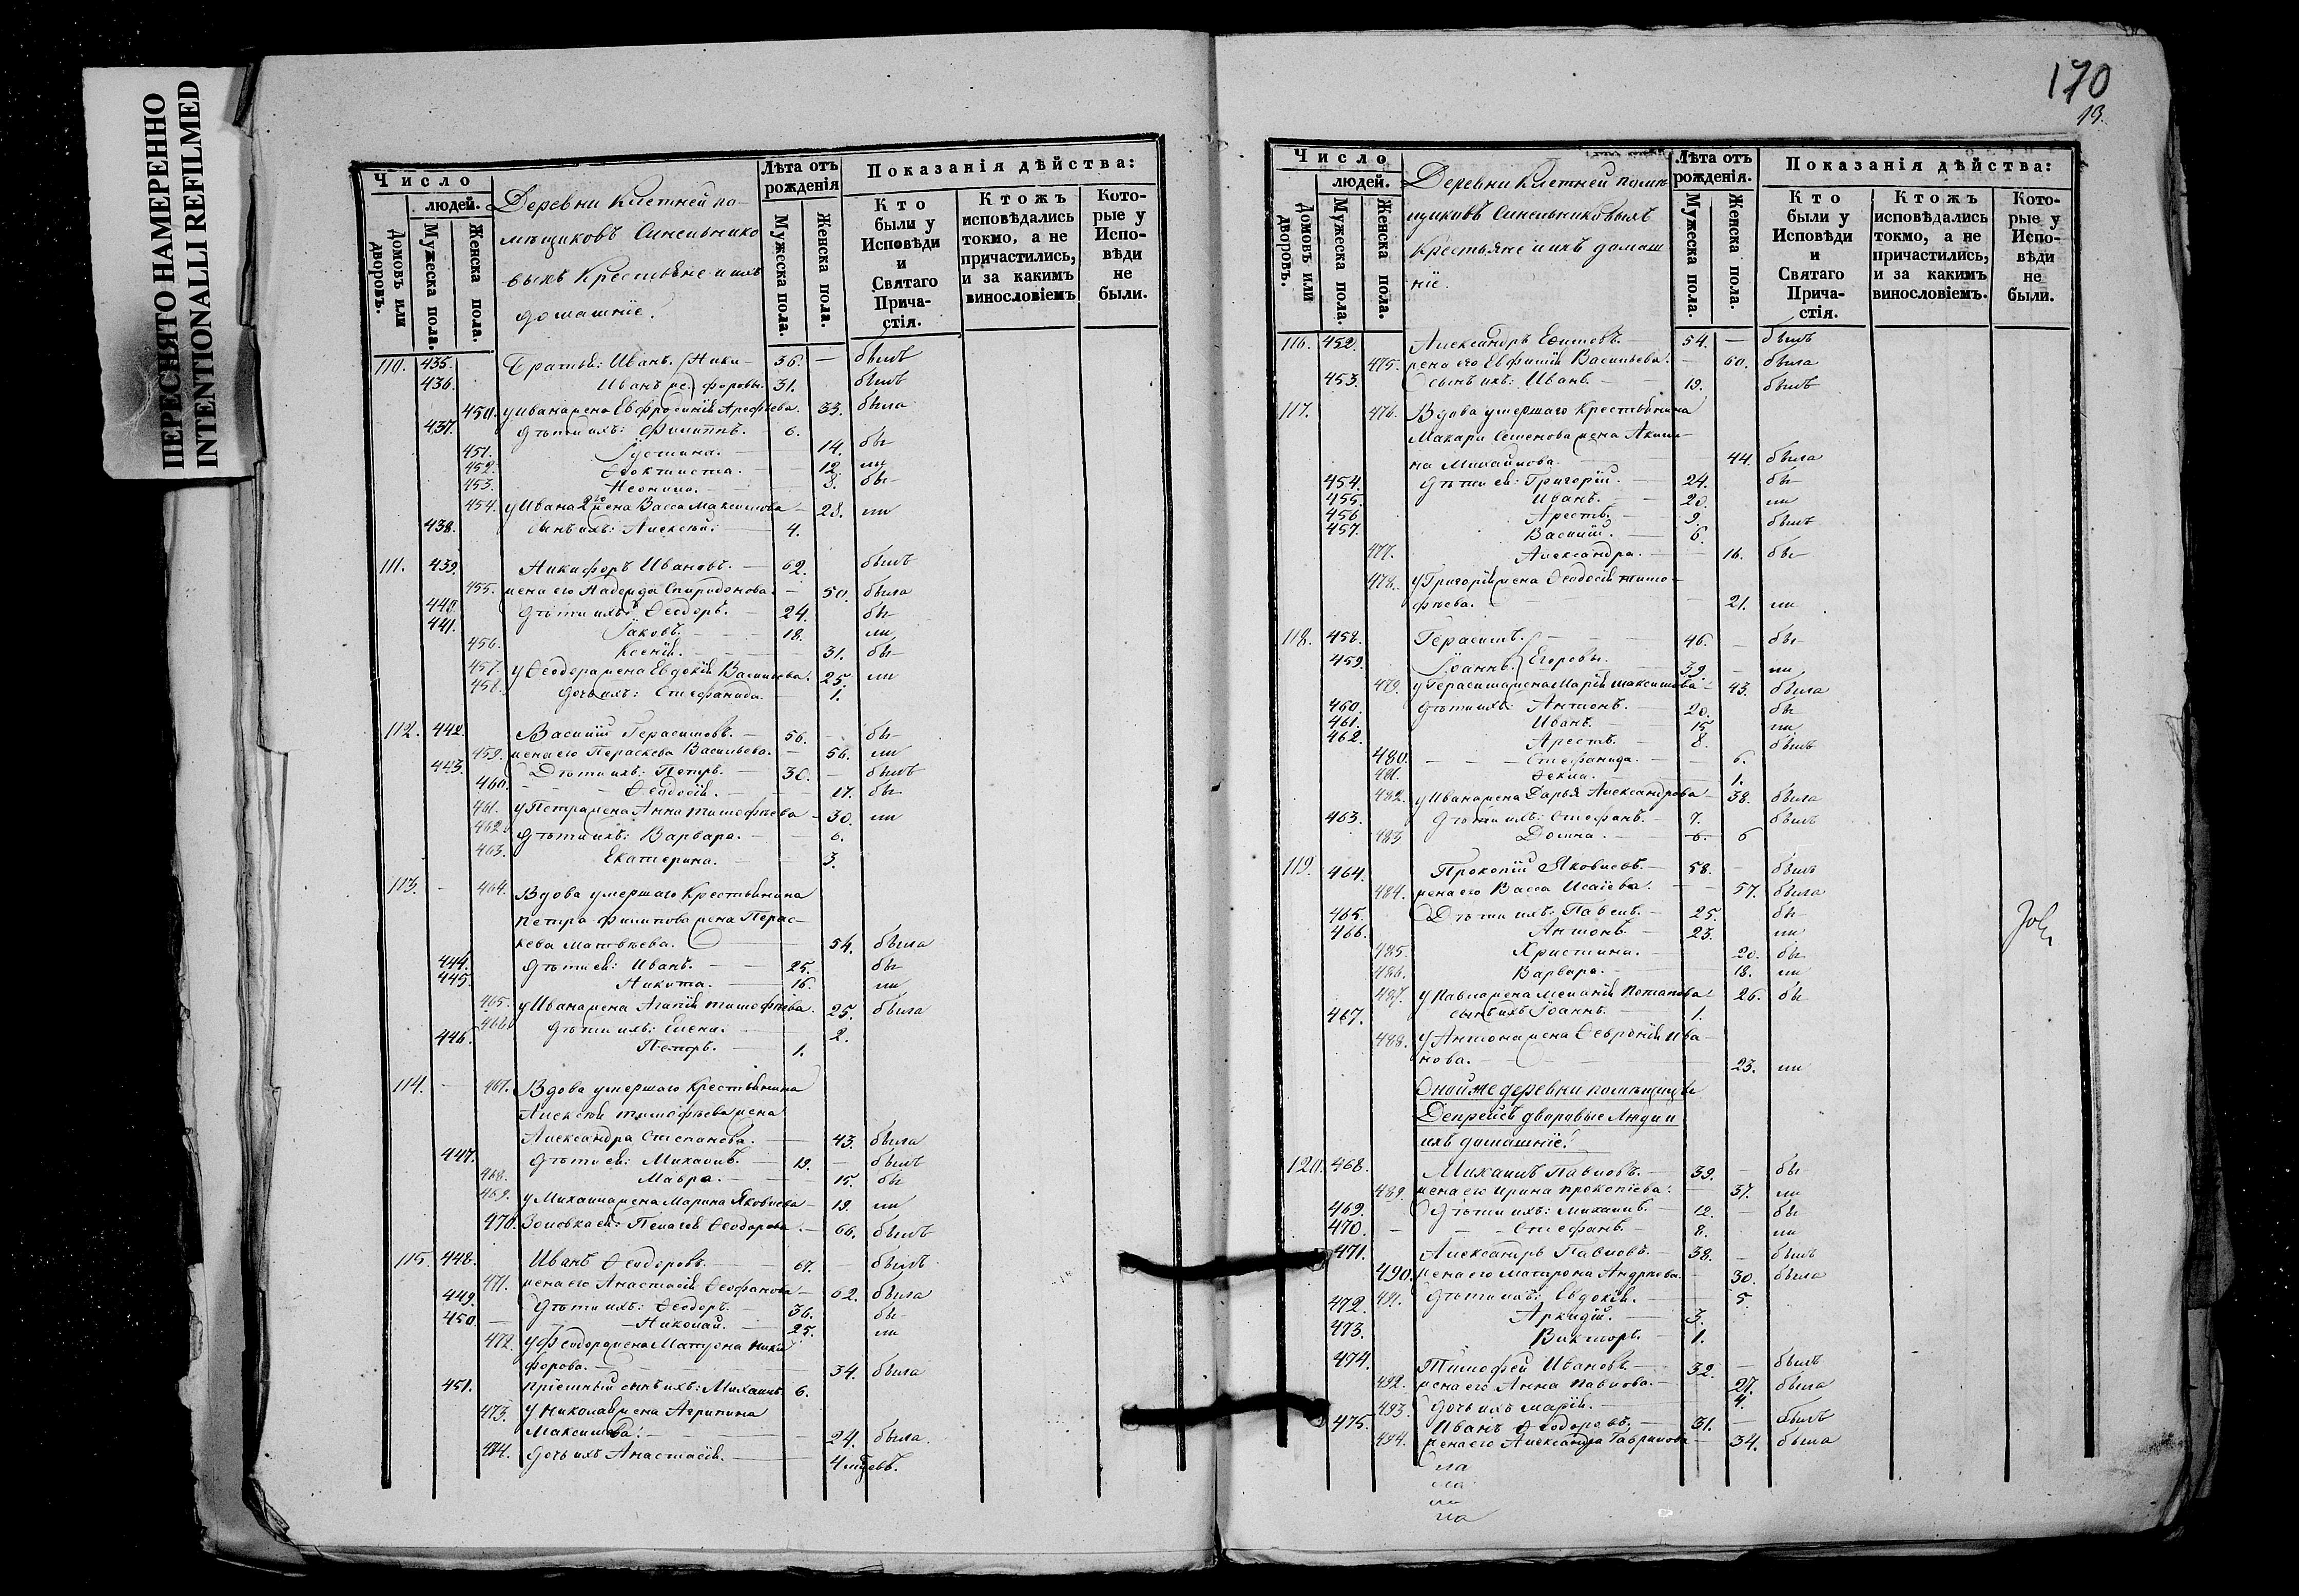 ПЕРЕСНЯТО НАМЕРЕННО
INTENTIONALLI REFILMED
Число
людей.
Домовъ или дворовъ.
Мужеска пола.
Женска пола.
Деревни Клетней по-
мѣщиковъ Синельнико
выхъ Крестьяне и ихъ
домашніе.
Лѣта отъ рожденія
Мужеска пола.
Женска пола.
Показанія дѣйства:
Кто были у Исповѣди и Святаго Прича-стія.
Ктожъ исповѣдались токмо, а не причастились, и за какимъ винословіемъ
Кото-рые у Испо-вѣди не были.
110. 435. Братья: Иванъ. Ники- 36. — былъ
436. Иванъ форовы. 31. былъ
450. у Ивана жена Евфросинія Арефьева. 33. была
437. Дѣти ихъ: Филиппъ. 6.
451. Іустина. 14. бы-
452. Ѳеоктиста. 12. ли
453. Неонила. 8. бы-
454. у Ивана 2го жена Васса Максимова — 28. ли
438. сынъ ихъ: Алексѣй. 4.
111. 439. Никифоръ Ивановъ. — 62. былъ
455. жена его Надежда Спиридонова. — 50. была
440. Дѣти ихъ: Ѳеодоръ. — 24. бы-
441. Іаковъ. 18. ли
456. Ксенія. 31. бы-
457. у Ѳеодора жена Евдокія Васильева. 25. ли
458. дочь ихъ: Стефанида. 1.
112. 442. Василій Герасимовъ. — 56. — бы-
459. жена его Пераскева Васильева. — 56. ли
443. Дѣти ихъ: Петръ. 30. — былъ
460. Ѳеодосія. 17. бы-
461. у Петра жена Анна Тимофѣева — 30. ли
462. Дѣти ихъ: Варвара. 6.
463. Екатерина. 3.
113. — 464. Вдова умершаго Крестьянина
Петра Филипова жена Перас-
кева Матвѣева. 54. была
444. Дѣти ея: Иванъ. 25. бы-
445. Никита. 16. ли
465. у Ивана жена Агапія Тимофѣева. 25. была
466. Дѣти ихъ: Елена. 2.
446. Петръ. 1.
114. — 467. Вдова умершаго Крестьянина
Алексѣя Тимофѣева жена
Александра Степанова. 43. была
447. Дѣти ея: Михаилъ. — 19. — былъ
468. Мавра. 15. бы-
469. у Михаила жена Марина Яковлева — 19. ли
470. Золовка ея: Пелагея Ѳеодорова. — 66. былъ
115. 448. Иванъ Ѳеодоровъ. 67. — былъ
471. жена его Анастасія Ѳеофанова — 62. была
449. Дѣти ихъ: Ѳеодоръ. 36. бы-
450. — Николай. 25. ли
472. у Феодора жена Матрона Ники
форова. 34. была
451. пріемный сынъ ихъ: Михаилъ 6.
473. у Николая жена Агрипина
Максимова. 24. была.
474. дочь ихъ Анастасія. 4 мѣсяцевъ.
170
13.
Число
людей.
Домовъ или дворовъ.
Мужеска пола.
Женска пола.
Деревни Клетней помѣ
щиковъ Синельниковыхъ
Крестьяне и ихъ домаш
ніе.
Лѣта отъ рожденія.
Мужеска пола.
Женска пола.
Показанія дѣйства:
Кто были у Исповѣди и Святаго Прича-стія.
Ктожъ исповѣдались токмо, а не причастились, и за какимъ винословіемъ.
Кото-рые у Испо-вѣди не были.
116. 452. Александръ 54. — былъ
475. жена его Евфимія Васильева. — 60. была
453. сынъ ихъ: Иванъ. 19. былъ
117. 476. Вдова умершаго Крестьянина
Макари Семенова жена Акили-
на Михайлова. 44. была
454. Дѣти ея: Григорій. 24. бы-
455. Иванъ. 20. ли
456. Арестъ. 9. былъ
457. Василій. 6.
477. Александра. 16. бы-
478. у Григорія жена Ѳеодосія Тимо-
фѣева. 21. ли
118. 458. Герасимъ. 46. — бы-
459. Іоаннъ. Егоровы. 39. — ли
479. у Герасима жена Марія Максимова — 43. была
460. Дѣти ихъ: Антонъ. 20. бы-
461. Иванъ. 15. ли
462. Арестъ. 8. былъ
480. — — Стефанида. 6.
481. Ѳекла. 1.
482. у Ивана жена Дарья Александрова — 38. была
463. Дѣти ихъ: Стефанъ. 7. былъ
483 Домна. 6. 6
119. 464. Прокопій Яковлевъ. 58. — былъ
484. жена его Васса Исаіева. — 57. была
465. Дѣти ихъ: Павелъ. 25. бы-
466. Антонъ. 23. ли
485. Христина. 20. бы-
486. Варвара. 18. ли
487. у Павла жена Меланія Потапова 26. бы-
467. сынъ ихъ Іоаннъ. 1.
488. у Антона жена Ѳевронія Ива-
нова. 23. ли
Оной же деревни помѣщицы
Депрейсъ дворовые Люди и
ихъ домашніе.
120. 468. Михаилъ Павловъ. 39. — бы-
489. жена его Ирина Прокопіева. 37. ли
469. Дѣти ихъ: Михаилъ. 12. — бы-
470. — — Стефанъ. 8. ли
471. Александръ Павловъ. 38. — былъ
490. жена его Матрона Андрѣева. 30. была
491. Дѣти ихъ: Евдокія. 5.
472. Аркадій. 3.
473. Викторъ. 1.
474. Тимофей Ивановъ. 32. — былъ
492. жена его Анна Павлова. 27. была
493. дочь ихъ Марія. 4.
475. Иванъ Ѳеодоровъ. 31. — былъ
494. жена его Александра Гаврилова 34. была
ла
ла
ла
ла